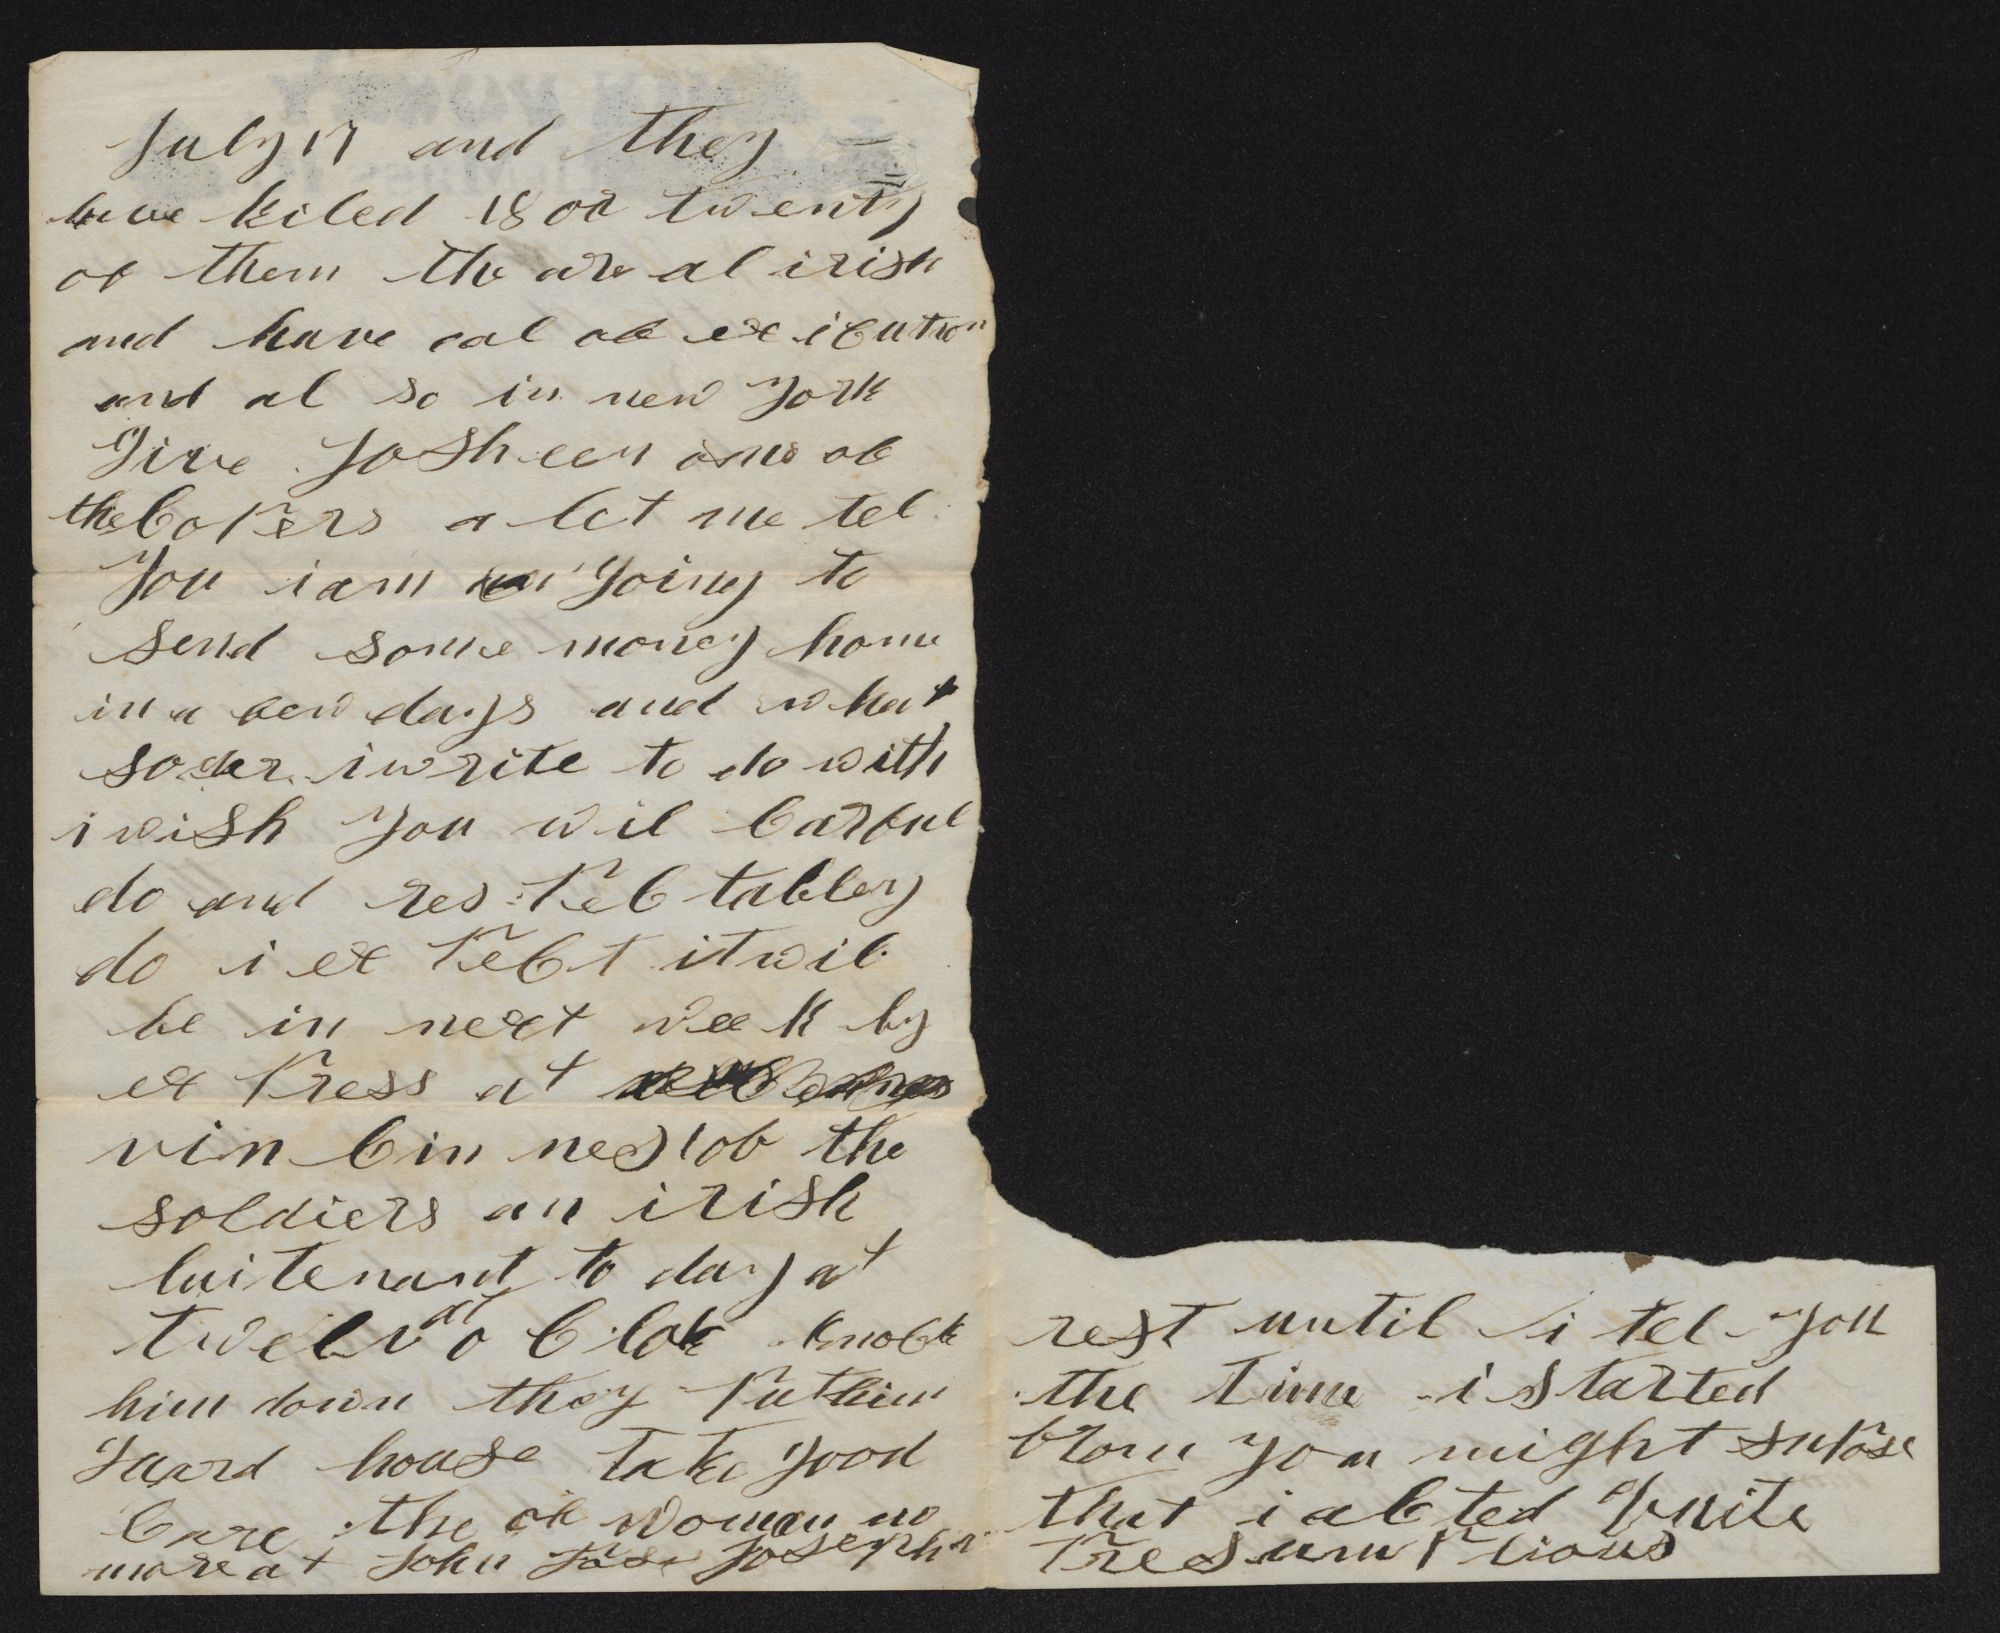 July 17 and they
have kiled 18 or twenty
of them the are al irish
and have cal of exicution
and al so in new york
give Josheen one of
the coPers a let me tel
you i am going to
send some money home
in a few days and what
so ever i write to do with
i wish you wil carful
do and res Pectabley
do i ex Pect it wil
be in next week by
ex Press at
vin cin nes 1 of the
soldiers an irish
luitenant to day at
twelv at o clok knock
him down they Put him
guard house take good
care the of woman no
more at John Joseph
rest until i tel you
the time i started
from you might supose
that i acted Quite
Presum Ptious